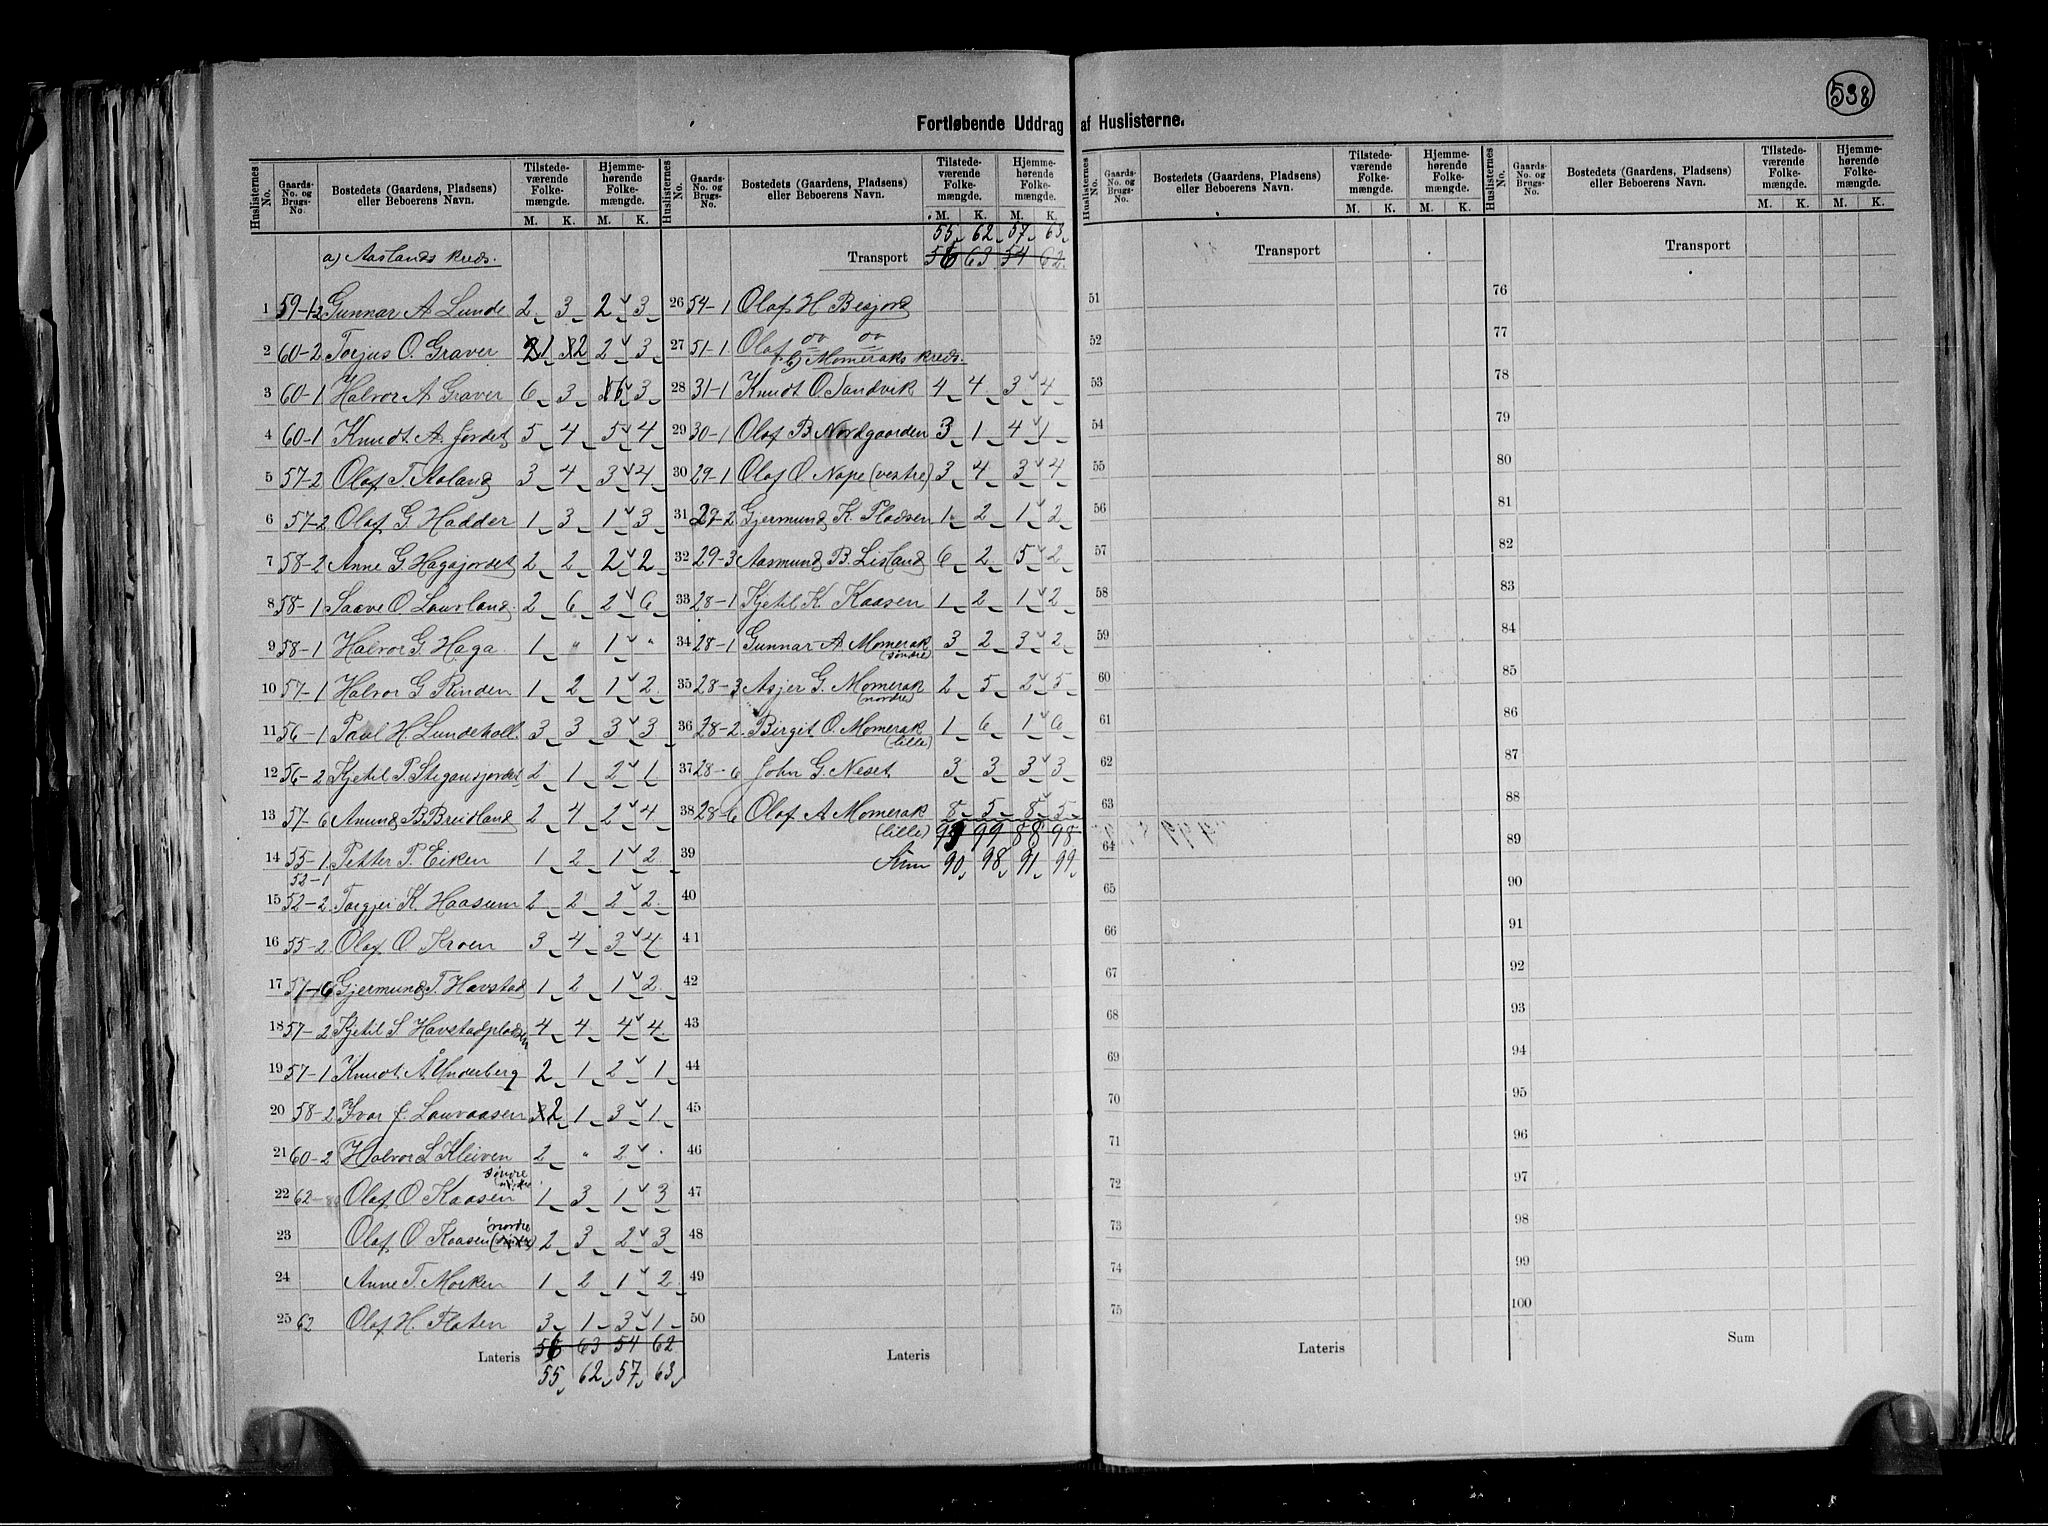 538
Fortløbende Uddrag af Huslisterne.
Huslisternes No. | Gaards-No. og Brugs-No. | Bostedets (Gaardens, Pladsens) eller Beboerens Navn. | Tilstedeværende Folkemængde. M. K. | Hjemmehørende Folkemængde. M. K.
a) Aaslands kreds.
1 59-1,2 Gunnar A Lunde 2 3 2 3
2 60-2 Torjus O. Graver 1 2 2 3
3 60-1 Halvor A Graver 6 3 6 3
4 60-1 Knudt A. Jordet 5 4 5 4
5 57-2 Olaf T. Aaland 3 4 3 4
6 57-2 Olaf G. Hadder 1 3 1 3
7 58-2 Anne G Hagajordet 2 2 2 2
8 58-1 Saave O. Laurland 2 6 2 6
9 58-1 Halvor G. Haga 1 " 1 "
10 57-1 Halvor G Rinden 1 2 1 2
11 56-1 Paal H. Lundekoll 3 3 3 3
12 56-2 Kjetil P. Stigansjordet 2 1 2 1
13 57-6 Anund B Breidland 2 4 2 4
14 55-1 Petter P. Eiken 1 2 1 2
52-1
15 52-2 Torgjei K. Haasum 2 2 2 2
16 55-2 Olaf O. Kroen 3 4 3 4
17 57-6 Gjermund T. Havstad 1 2 1 2
18 57-2 Kjetil S Havstadpladsen 4 4 4 4
19 57-1 Knudt Å Underberg 2 1 2 1
20 58-2 Ivar J. Lauvaasen 2 1 3 1
21 60-2 Halvor S Kleiven 2 " 2 "
22 62 Olaf O Kaasen søndre 1 3 1 3
23 Olaf O Kaasen nordre 2 3 2 3
24 Anne T. Morken 1 2 1 2
25 62 Olaf H. Platen 3 1 3 1
Lateris 56 63 54 62
55 62 57 63
55 62 57 63
Transport 56 63 54 62
26 54-1 Olaf H Besjord
27 51-1 Olaf
b) Momeraks kreds.
28 31-1 Knudt O. Sandvik 4 4 3 4
29 30-1 Olaf B Nordgaarden 3 1 4 1
30 29-1 Olaf O Nape (vestre) 3 4 3 4
31 29-2 Gjermund K. Pladsen 1 2 1 2
32 29-3 Aasmund B. Lisland 6 2 5 2
33 28-1 Kjetil K. Kaasen 1 2 1 2
34 28-1 Gunnar A Momerak (søndre) 3 2 3 2
35 28-3 Asjer G. Momerak (nordre) 2 5 2 5
36 28-2 Birgit O. Momerak (lille) 1 6 1 6
37 28-6 John G. Neset 3 3 3 3
38 28-6 Olaf A Momerak (lille) 8 5 8 5
99 88 98
39 Sum 90 98 91 99
40
41
42
43
44
45
46
47
48
49
50
Lateris
Huslisternes No. | Gaards-No. og Brugs-No. | Bostedets (Gaardens, Pladsens) eller Beboerens Navn. | Tilstedeværende Folkemængde. M. K. | Hjemmehørende Folkemængde. M. K.
Transport
51
52
53
54
55
56
57
58
59
60
61
62
63
64
65
66
67
68
69
70
71
72
73
74
75
Lateris
Transport
76
77
78
79
80
81
82
83
84
85
86
87
88
89
90
91
92
93
94
95
96
97
98
99
100
Sum